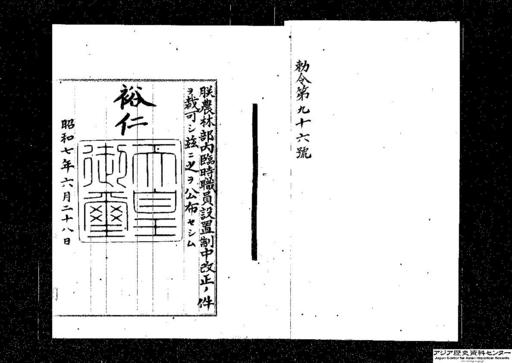 勅令第九十六號
朕農林部内臨時職員設置制中改正ノ件
ヲ裁可シ茲ニ之ヲ公布セシム
裕仁
天皇御璽
昭和七年六月二十八日
アジア歴史資料センター
Japan Center for Asian Historical Records